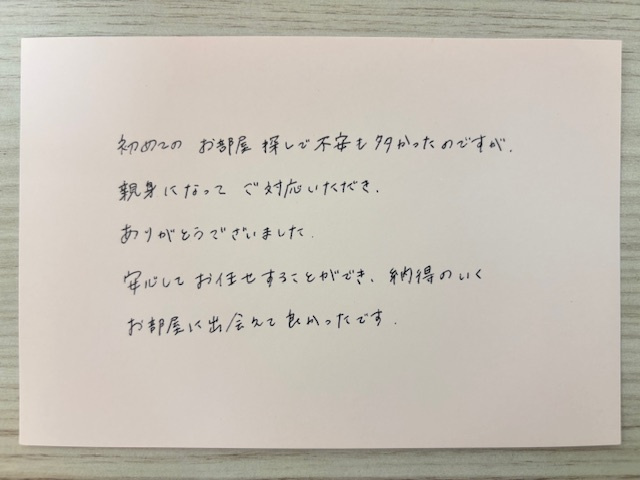 初めてのお部屋探しで不安も多かったのですが、
親身になってご対応いただき、
ありがとうございました。
安心してお任せすることができ、納得のいく
お部屋に出会えて良かったです。